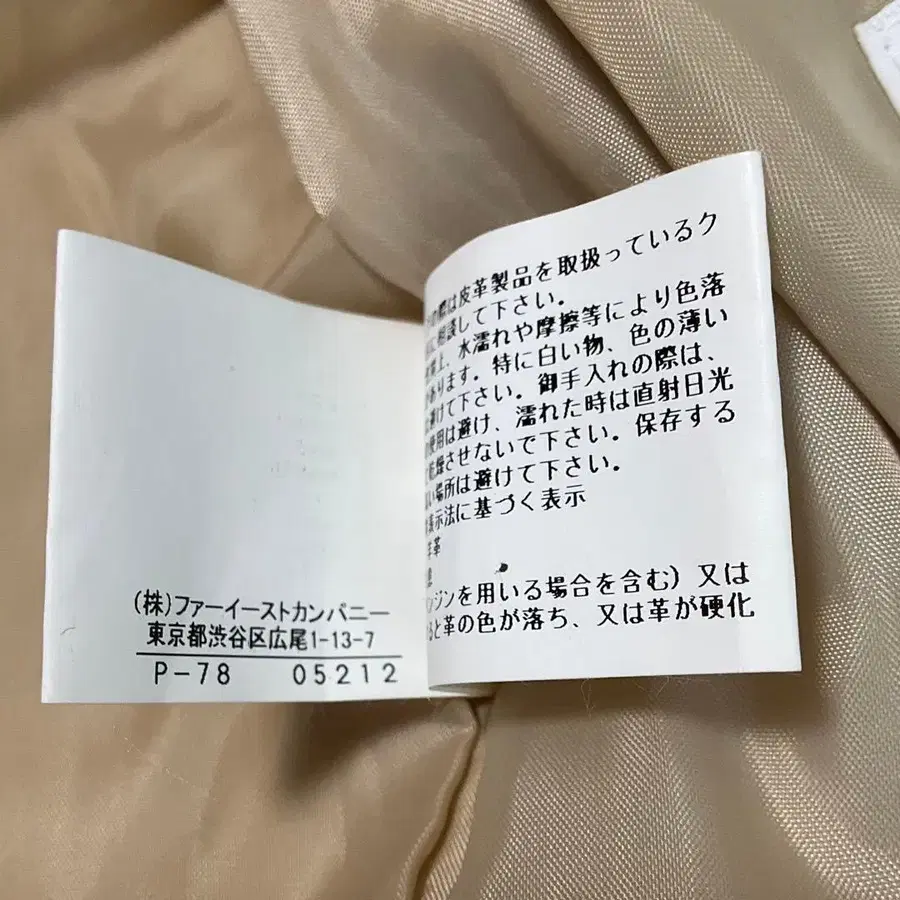 (株)ファーイーストカンパニー
東京都渋谷区広尾1-13-7
P-78 05212
の際は皮革製品を取扱っているク
に相談して下さい。
上、水濡れや摩擦等により色落
あります。特に白い物、色の薄い
けて下さい。御手入れの際は、
使用は避け、濡れた時は直射日光
乾燥させないで下さい。保存する
い場所は避けて下さい。
表示法に基づく表示
羊革
ンジンを用いる場合を含む)又は
ると革の色が落ち、又は革が硬化